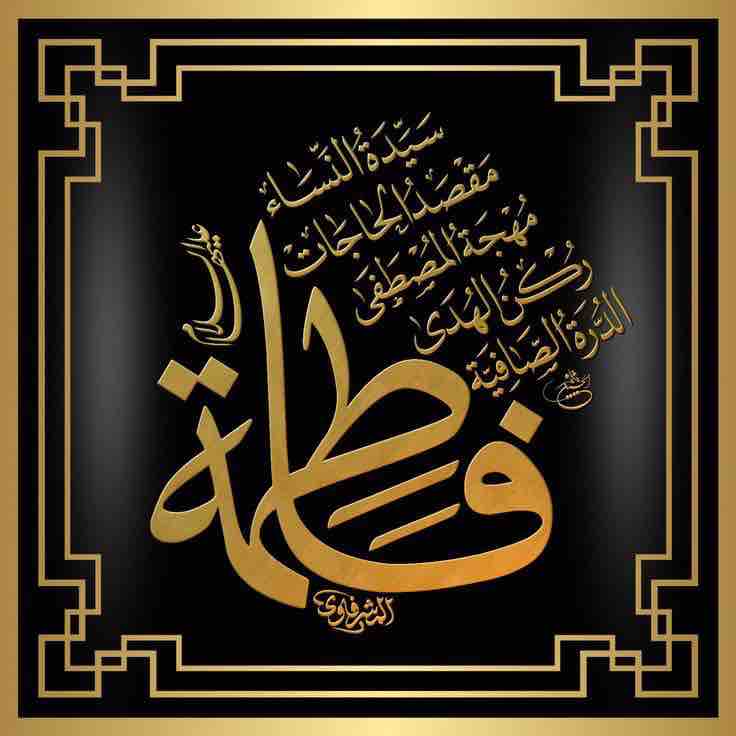 سَيِّدَةُ النِّسَاء
مَقْصَدُ الحَاجَات
مُهْجَةُ المُصْطَفَى
رُكْنُ الهُدَى
الدُّرَّةُ الصَّافِيَّة
فاطمة
عليها السلام
الشرفاوي